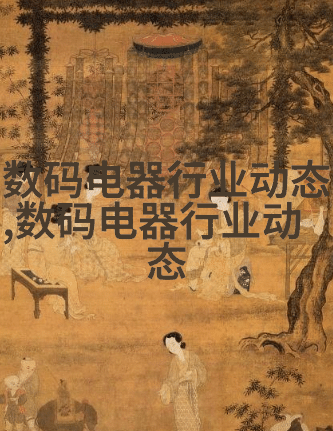 数码电器行业动态
,数码电器行业动
态